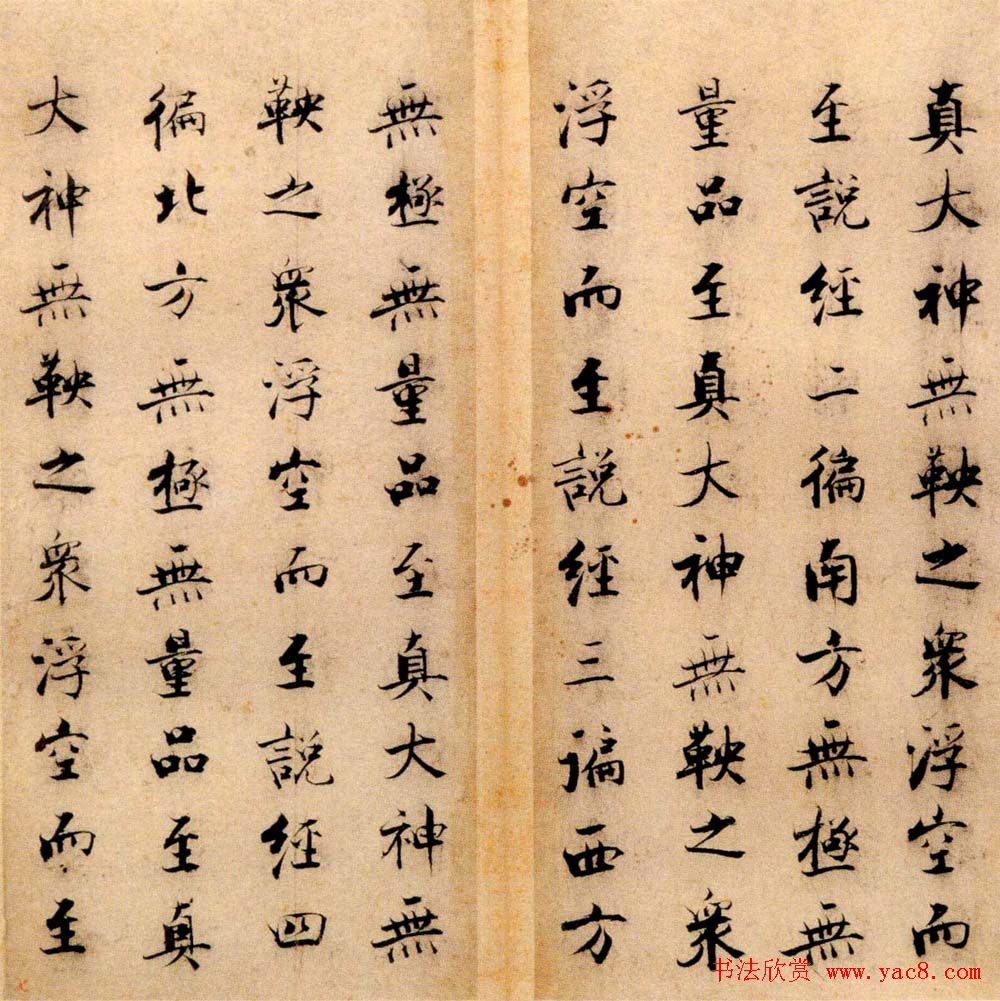 真大神無鞅之衆浮空而
至說經二徧南方無極無
量品至真大神無鞅之衆
浮空而至說經三遍西方
無極無量品至真大神無
鞅之衆浮空而至說經四
徧北方無極無量品至真
大神無鞅之衆浮空而至
书法欣赏 www.yac8.com